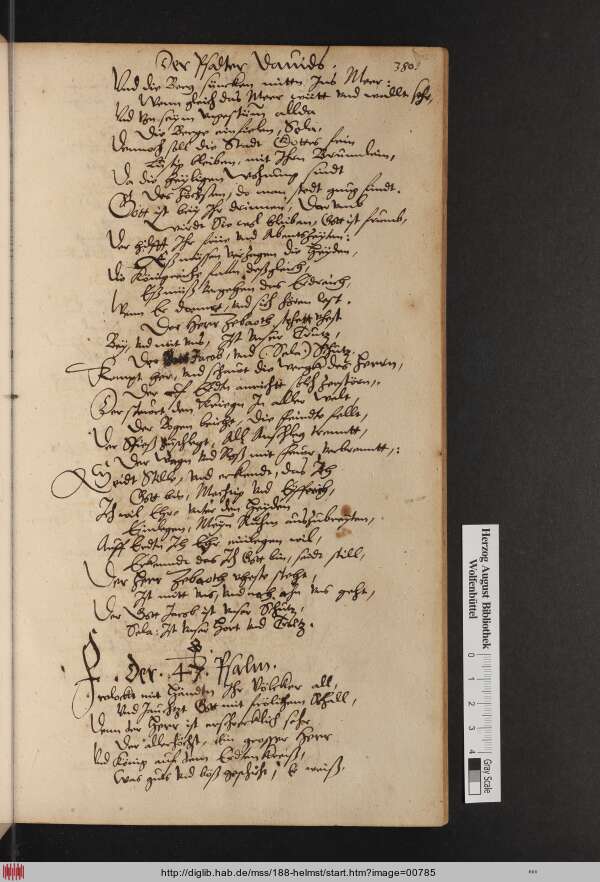 Der Psalter Dauids. 380.
Vnd die Berg suncken mitten Ins Meer:
Wenn gleich das Meer wütt vnd wallt sehr,
Vnd von seim vngestüm allda
Die Berge einfieln, Sela,
Dennoch soll die Stadt Gottes fein
Lustig bleiben, mit Ihrn Brünnlein,
Da die heyligen Wohnung sindt
Des Höchsten, do man
Gott ist bey Ihr drinnen, Darumb
Wirdt Sie wol bleiben, Gott ist frumb,
Der hilfft Ihr frue vnd
Die Heyden,
Die Königreiche fallen desgleich,
Das Erdreich,
Wenn Er und sich hören lest.
Der Herr Zebaoth
Bey, vnd mit vns, Ist vnser
Der Gott Jacob, vnd (Sela) Schutz.
Kompt her, vnd schauet die Werck des Herrn,
Der auf Erdn anricht solch zerstörn,
Der steuret den Kriegn In aller Welt,
Der Bogen bricht, die feindt fellt,
Der Spieß zuschlegt, All Anschleg trennt,
Der Wagn vnd Roß mit feuer verbrennt:
Seidt Stille, vnd erkendt, das Ich
Gott bin, Mechtig vnd
Ich wil Ehre vnter den Heyden
Einlegen, Meyn Ruhm außzubreyten,
Auff Erdn Ich Ehr einlegen wil,
Erkennt das Ich Gott bin, seidt still,
Der Herr Zebaoth steht,
Ist mitt vns, vnd mit vns geht,
Der Gott Jacob ist vnser Schutz,
Sela: Ist vnser Hort vnd
Der 47. Psalm.
Frolockt mit Händen Ihr Völcker all,
Vnd Jauchzt Gott mit frölichem Schall,
Denn der Herr ist erschrecklich sehr
Der allerhöchst, ein grosser Herr
Vnd König auf dem Erden Kreiß,
Was guts vnd böß geschicht, Er weiß.
Herzog August Bibliothek
Wolfenbüttel
0 1 2 3 4
Gray Scale
http://diglib.hab.de/mss/188-helmst/start.htm?image=00785